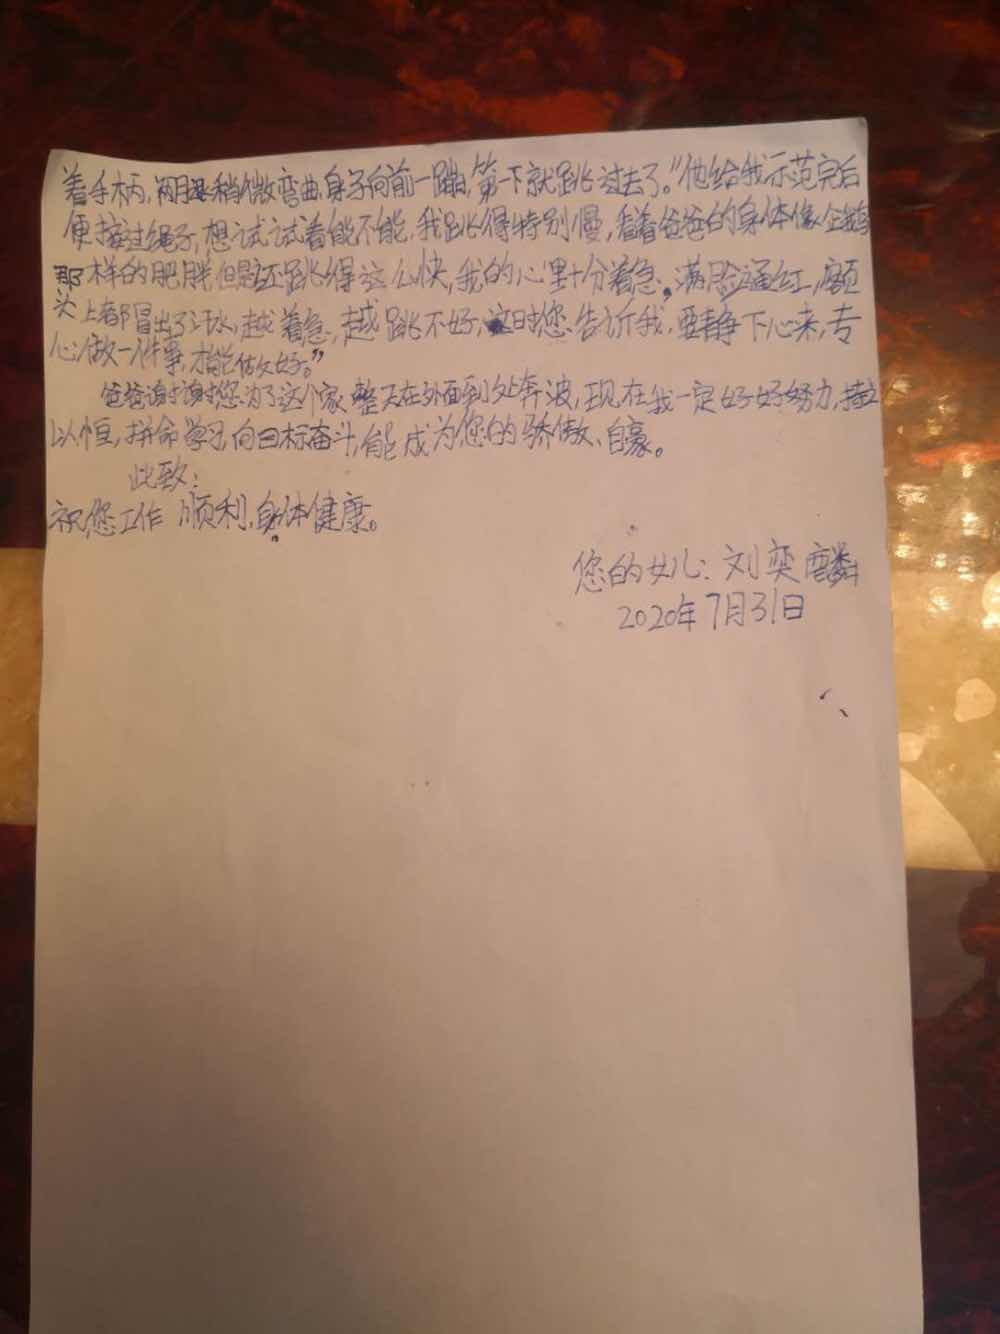 着手柄，两腿稍微弯曲，身子向前一蹦，第一下就跳过去了。”他给我示范完后
便接过绳子，想试试看能不能，我跳得特别慢，看着爸爸的身体像企鹅
那样的肥胖但是还跳得这么快，我的心里十分着急。满脸通红，额
头上都冒出了汗水，越着急，越跳不好，这时您告诉我，要静下心来，专
心做一件事，才能做好。”
爸爸谢谢您为了这个家整天在外面到处奔波，现在我一定好好努力，持之
以恒，拼命学习，向目标奋斗，能成为您的骄傲、自豪。
此致：
祝您工作顺利，身体健康。
您的女儿：刘奕麟
2020年7月31日